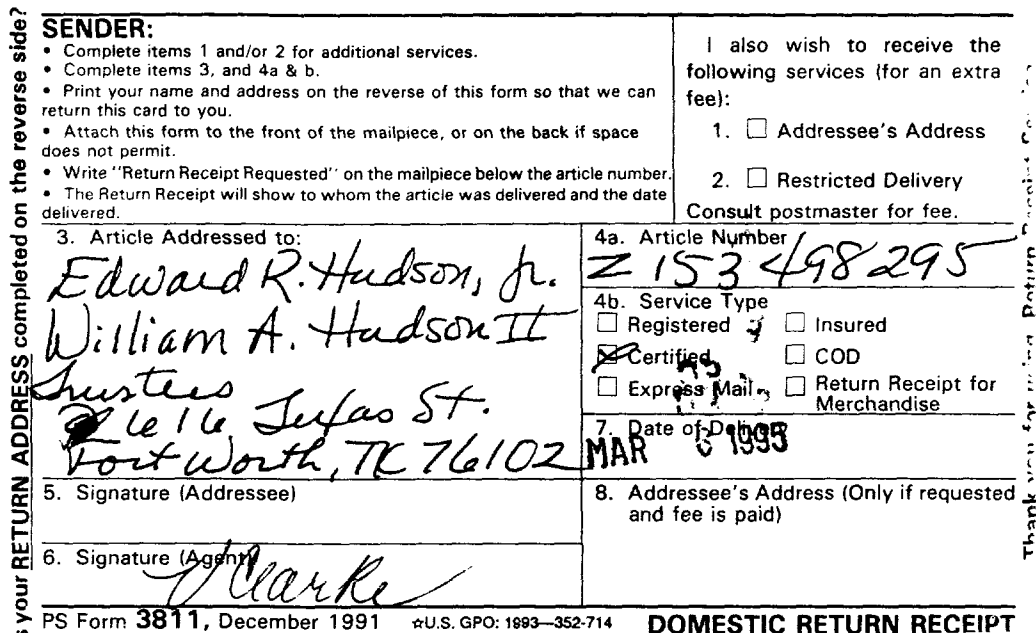 SENDER:
• Complete items 1 and/or 2 for additional services.
• Complete items 3, and 4a & b.
• Print your name and address on the reverse of this form so that we can
return this card to you.
• Attach this form to the front of the mailpiece, or on the back if space
does not permit.
• Write "Return Receipt Requested" on the mailpiece below the article number.
• The Return Receipt will show to whom the article was delivered and the date
delivered.
I also wish to receive the
following services (for an extra
fee):
1. ☐ Addressee's Address
2. ☐ Restricted Delivery
Consult postmaster for fee.
3. Article Addressed to:
Edward R. Hudson, Jr.
William A. Hudson II
Trustees
616 Texas St.
Fort Worth, TX 76102
4a. Article Number
Z 153 498 295
4b. Service Type
☐ Registered ☐ Insured
☒ Certified ☐ COD
☐ Express Mail ☐ Return Receipt for
Merchandise
7. Date of Delivery
MAR 6 1995
5. Signature (Addressee)
8. Addressee's Address (Only if requested
and fee is paid)
6. Signature (Agent)
V Clarke
PS Form 3811, December 1991 ☆U.S. GPO: 1993—352-714 DOMESTIC RETURN RECEIPT
your RETURN ADDRESS completed on the reverse side?
Thank you for using Return Receipt